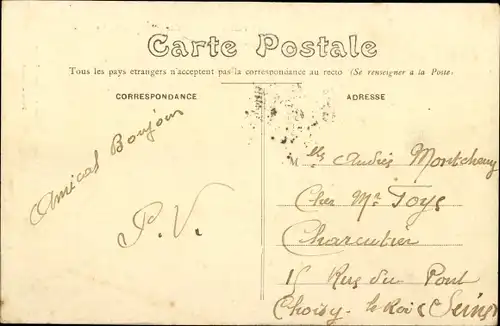 Carte Postale
Tous les pays etrangers n'acceptent pas la correspondance au recto (Se renseigner a la Poste.
CORRESPONDANCE
Amical Bonjour
P. V.
ADRESSE
Mlle Andrée
Chez Mr
Charcutier
15 Rue du Pont
Choisy-le-Roi (Seine)